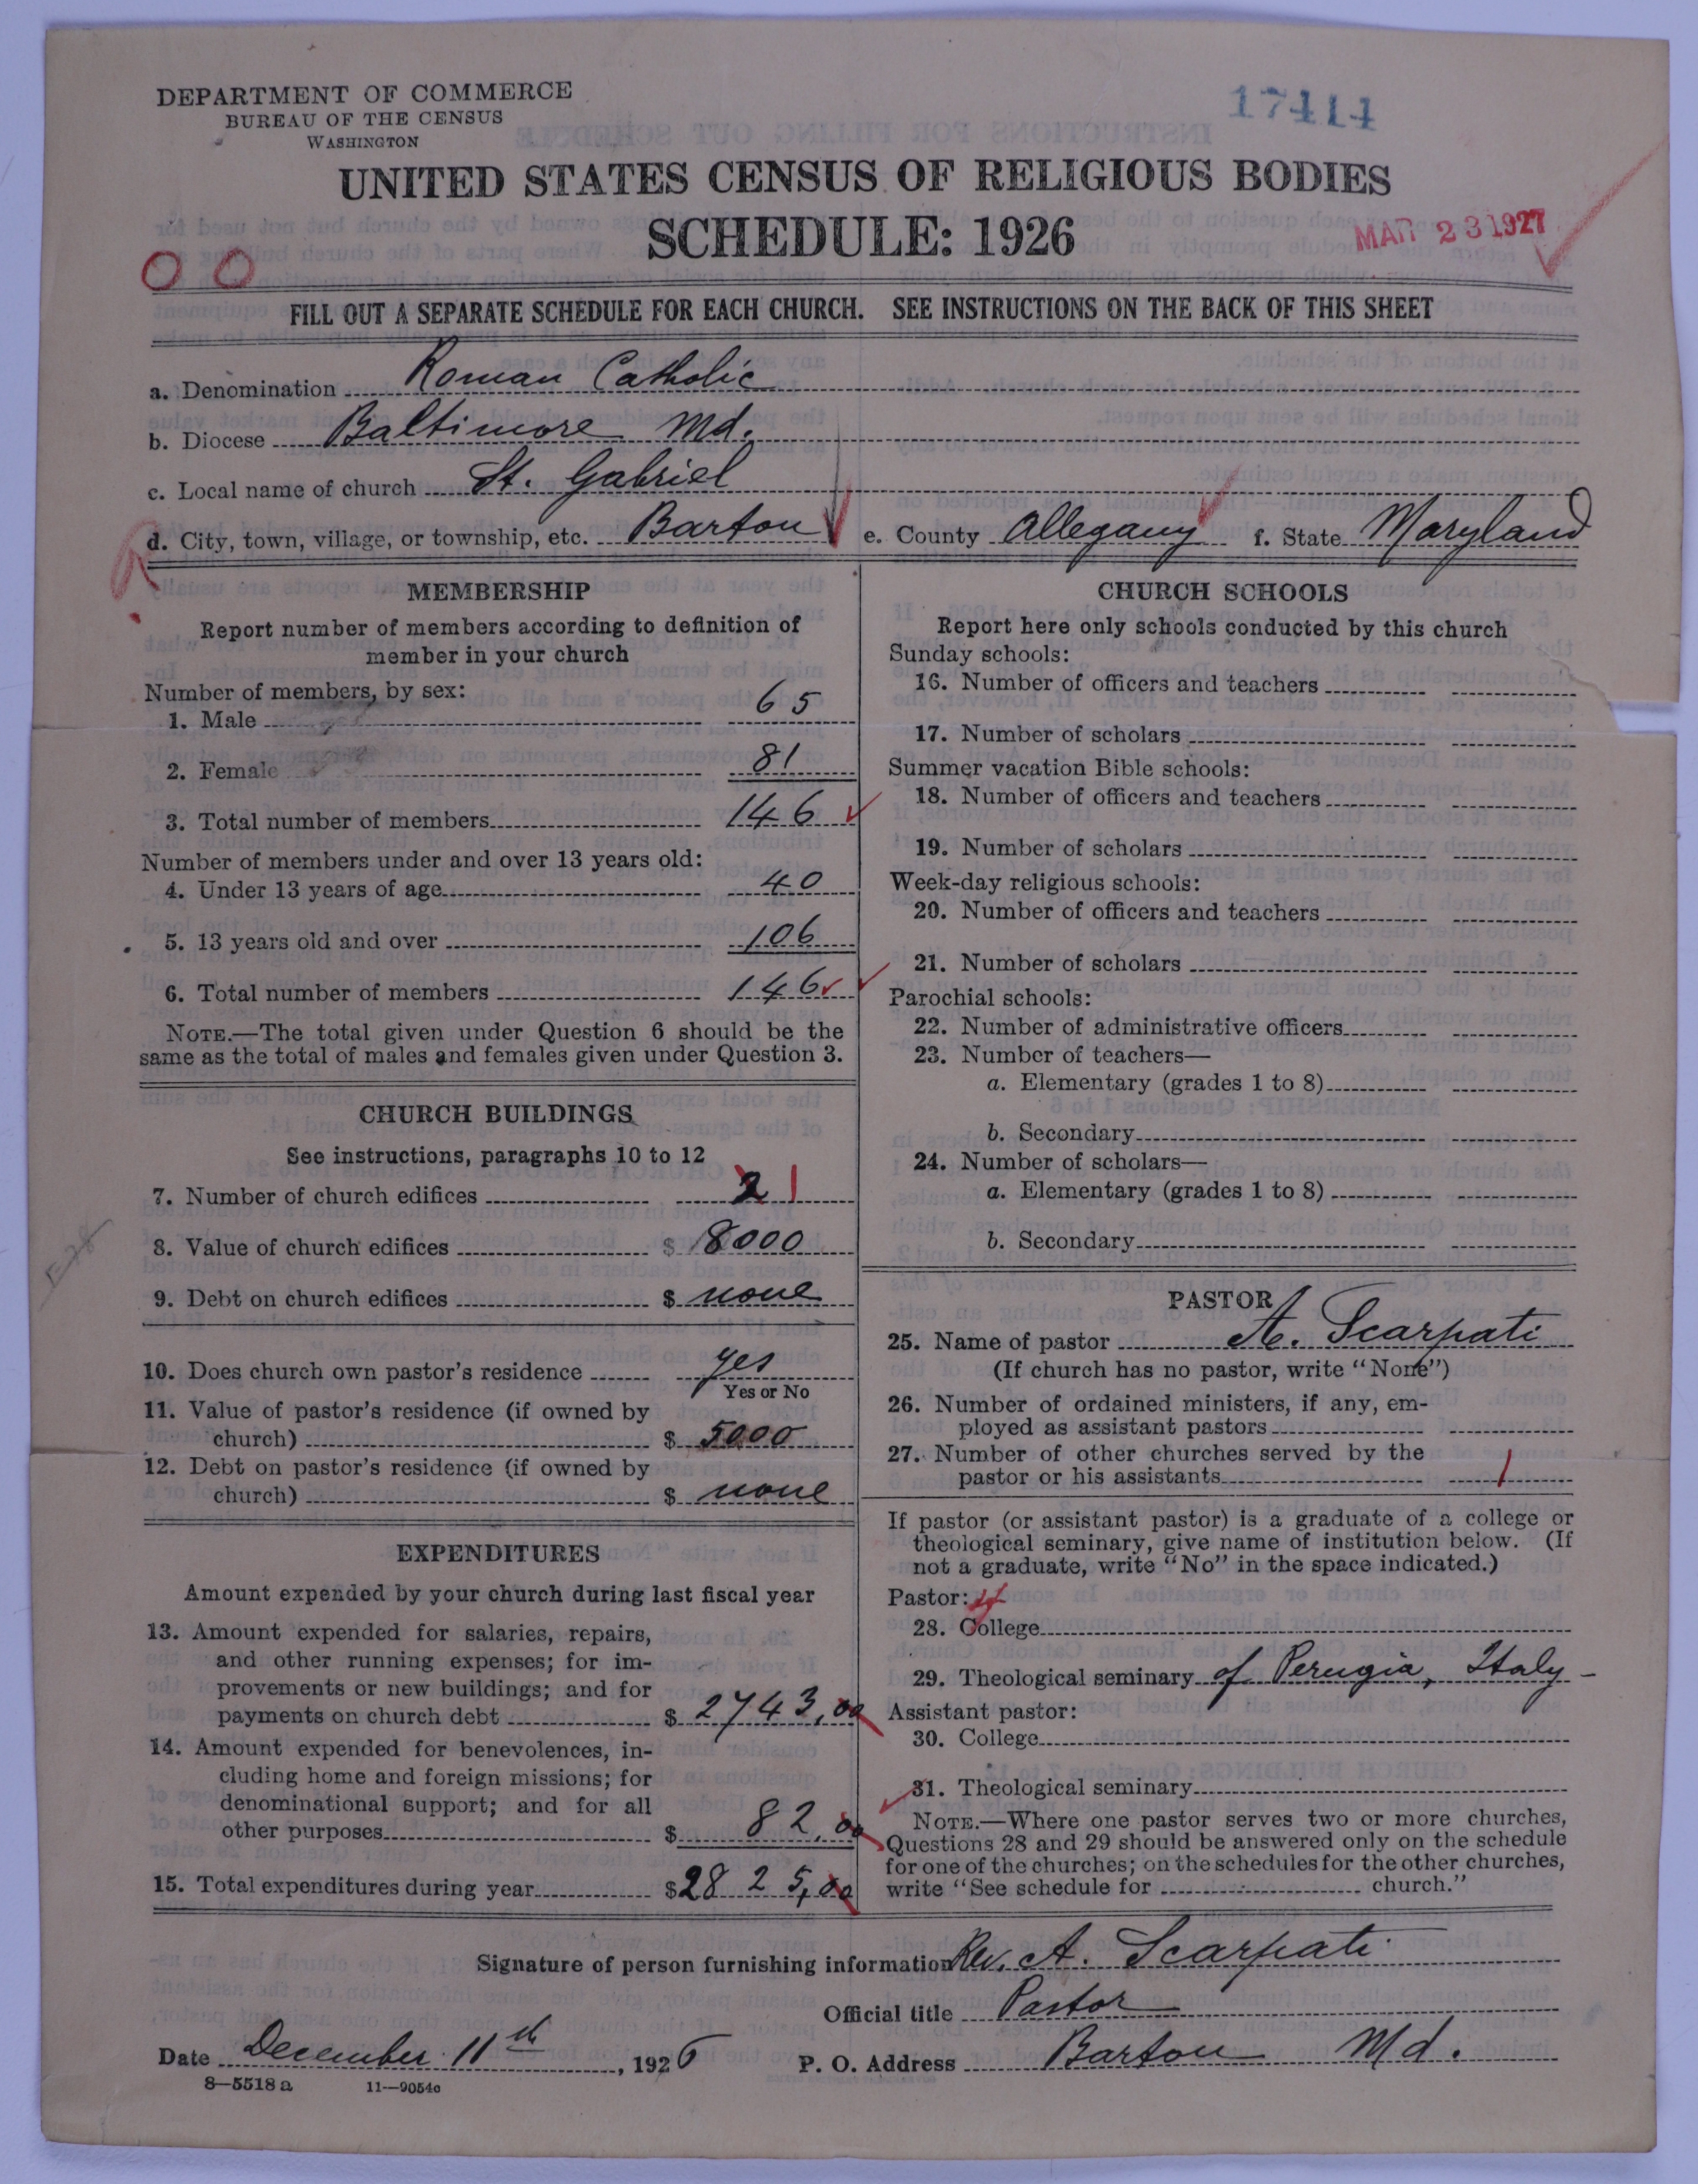 DEPARTMENT OF COMMERCE
BUREAU OF THE CENSUS
WASHINGTON
17414
UNITED STATES CENSUS OF RELIGIOUS BODIES
SCHEDULE: 1926
MAR 23 1927
0 0
FILL OUT A SEPARATE SCHEDULE FOR EACH CHURCH. SEE INSTRUCTIONS ON THE BACK OF THIS SHEET
a. Denomination Roman Catholic
b. Diocese Baltimore Md.
c. Local name of church St. Gabriel
d. City, town, village, or township, etc. Barton e. County Allegany f. State Maryland
MEMBERSHIP
Report number of members according to definition of
member in your church
Number of members, by sex:
1. Male 65
2. Female 81
3. Total number of members 146
Number of members under and over 13 years old:
4. Under 13 years of age 40
5. 13 years old and over 106
6. Total number of members 146
NOTE.—The total given under Question 6 should be the
same as the total of males and females given under Question 3.
CHURCH BUILDINGS
See instructions, paragraphs 10 to 12
7. Number of church edifices 2 1
8. Value of church edifices $ 8000
9. Debt on church edifices $ none
10. Does church own pastor's residence yes
Yes or No
11. Value of pastor's residence (if owned by
church) $ 5000
12. Debt on pastor's residence (if owned by
church) $ none
EXPENDITURES
Amount expended by your church during last fiscal year
13. Amount expended for salaries, repairs,
and other running expenses; for im-
provements or new buildings; and for
payments on church debt $ 2743,00
14. Amount expended for benevolences, in-
cluding home and foreign missions; for
denominational support; and for all
other purposes $ 82,00
15. Total expenditures during year $2825,00
CHURCH SCHOOLS
Report here only schools conducted by this church
Sunday schools:
16. Number of officers and teachers
17. Number of scholars
Summer vacation Bible schools:
18. Number of officers and teachers
19. Number of scholars
Week-day religious schools:
20. Number of officers and teachers
21. Number of scholars
Parochial schools:
22. Number of administrative officers
23. Number of teachers—
a. Elementary (grades 1 to 8)
b. Secondary
24. Number of scholars—
a. Elementary (grades 1 to 8)
b. Secondary
PASTOR
25. Name of pastor A. Scarpati
(If church has no pastor, write "None")
26. Number of ordained ministers, if any, em-
ployed as assistant pastors
27. Number of other churches served by the
pastor or his assistants 1
If pastor (or assistant pastor) is a graduate of a college or
theological seminary, give name of institution below. (If
not a graduate, write "No" in the space indicated.)
Pastor:
28. College
29. Theological seminary of Perugia, Italy -
Assistant pastor:
30. College
31. Theological seminary
NOTE.—Where one pastor serves two or more churches,
Questions 28 and 29 should be answered only on the schedule
for one of the churches; on the schedules for the other churches,
write "See schedule for church."
Signature of person furnishing information Rev. A. Scarpati
Official title Pastor
Date December 11th, 1926 P. O. Address Barton Md.
8—5518 a 11—9054c